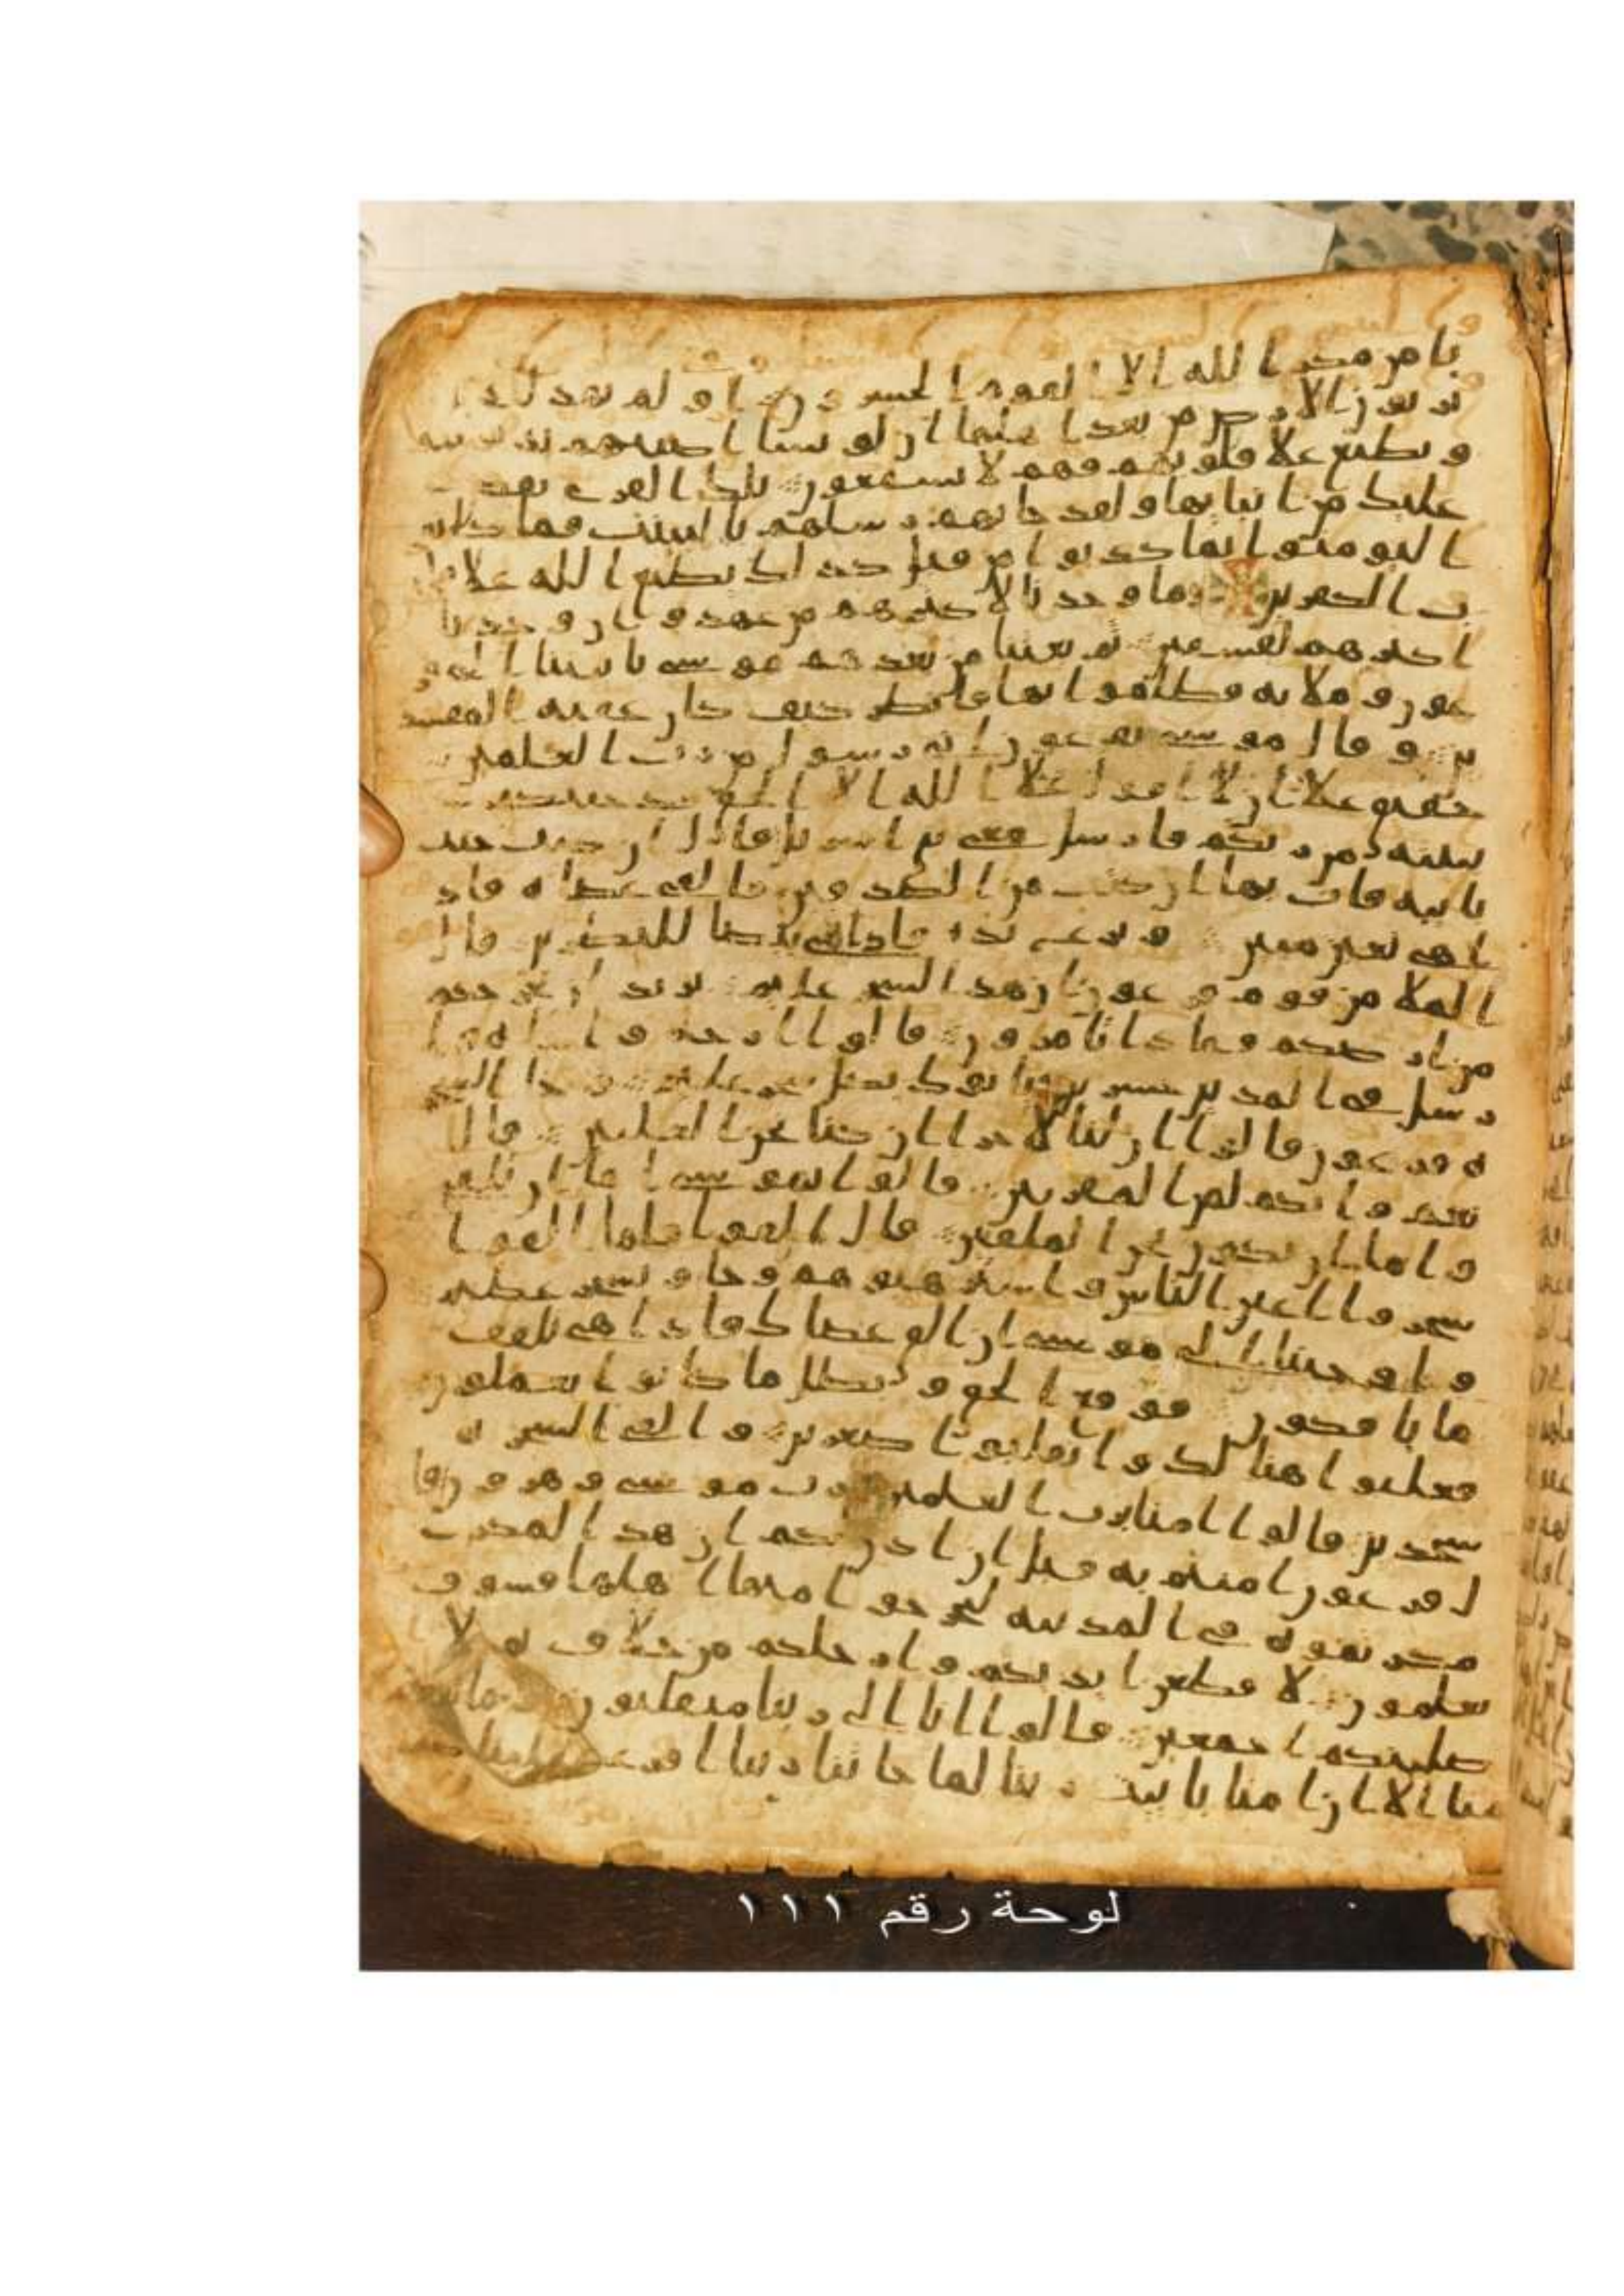 يامن مكر الله الا القوم الخسرون او لم يهد للذ
ين يرثون الارض من بعد اهلها ان لو نشا اصبنهم بذنوبهم
و نطبع علا قلوبهم فهم لا يسمعون تلك القرى نقص
عليك من انبايها ولقد جاتهم رسلهم بالبينت فما كانو
ا ليومنوا بما كذبوا من قبل كذلك يطبع الله علا قلو
ب الكفرين وما وجدنا لاكثرهم من عهد وان وجدنا
اكثرهم لفسقين ثم بعثنا من بعدهم موسى بايتنا الى فر
عون وملايه فظلموا بها فانظر كيف كان عقبه المفسد
ين وقال موسى يفرعون انى رسول من رب العلمين
حقيق علا ان لا اقول علا الله الا الحق قد جيتكم
ببينه من ربكم فارسل معى بنى اسريل قال ان كنت جيت
بايه فات بها ان كنت من الصدقين فالقى عصاه فاذ
ا هى ثعبن مبين ونزع يده فاذا هى بيضا للنظرين قال
الملا من قوم فرعون ان هذا لسحر عليم يريد ان يخرجكم
من ارضكم فماذا تامرون قالوا ارجه واخاه وا
رسل فى المدين حشرين ياتوك بكل سحر عليم وجا السحر
ه فرعون قالوا ان لنا لاجرا ان كنا نحن الغلبين قال
نعم وانكم لمن المقربين قالوا يموسى اما ان تلقى
واما ان نكون نحن الملقين قال القوا فلما القوا
سحروا اعين الناس واسترهبوهم وجاو بسحر عظيم
واوحينا الى موسى ان الق عصاك فاذا هى تلقف
ما يافكون فوقع الحق وبطل ما كانوا يعملون
فغلبوا هنالك وانقلبوا صغرين والقى السحره
سجدين قالوا امنا برب العلمين رب موسى وهرون قا
ل فرعون امنتم به قبل ان اذن لكم ان هذا لمكر
مكرتموه فى المدينه لتخرجوا منها اهلها فسوف
تعلمون لاقطعن ايديكم وارجلكم من خلاف ثم لا
صلبنكم اجمعين قالوا انا الى ربنا منقلبون وما تنقم
منا الا ان امنا بايت ربنا لما جاتنا ربنا افرغ علينا
لوحة رقم ١١١